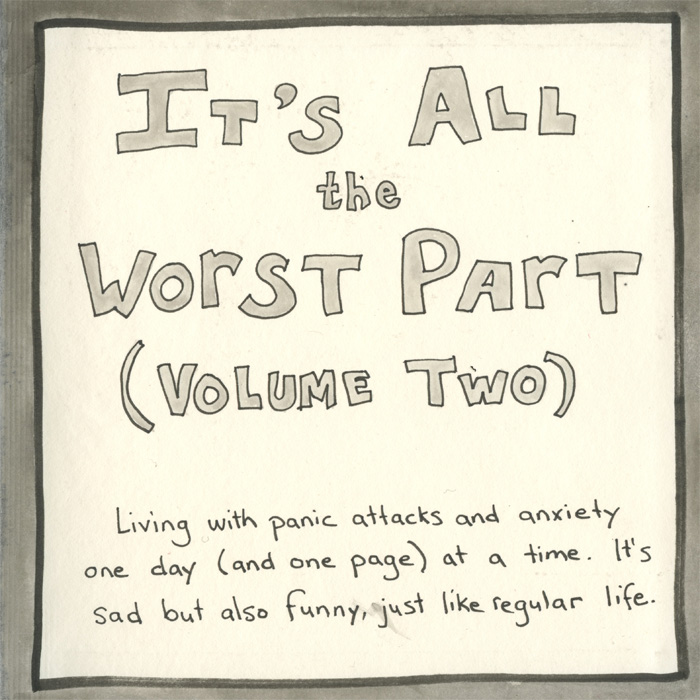 It's All
the
Worst Part
(Volume Two)
Living with panic attacks and anxiety
one day (and one page) at a time. It's
sad but also funny, just like regular life.